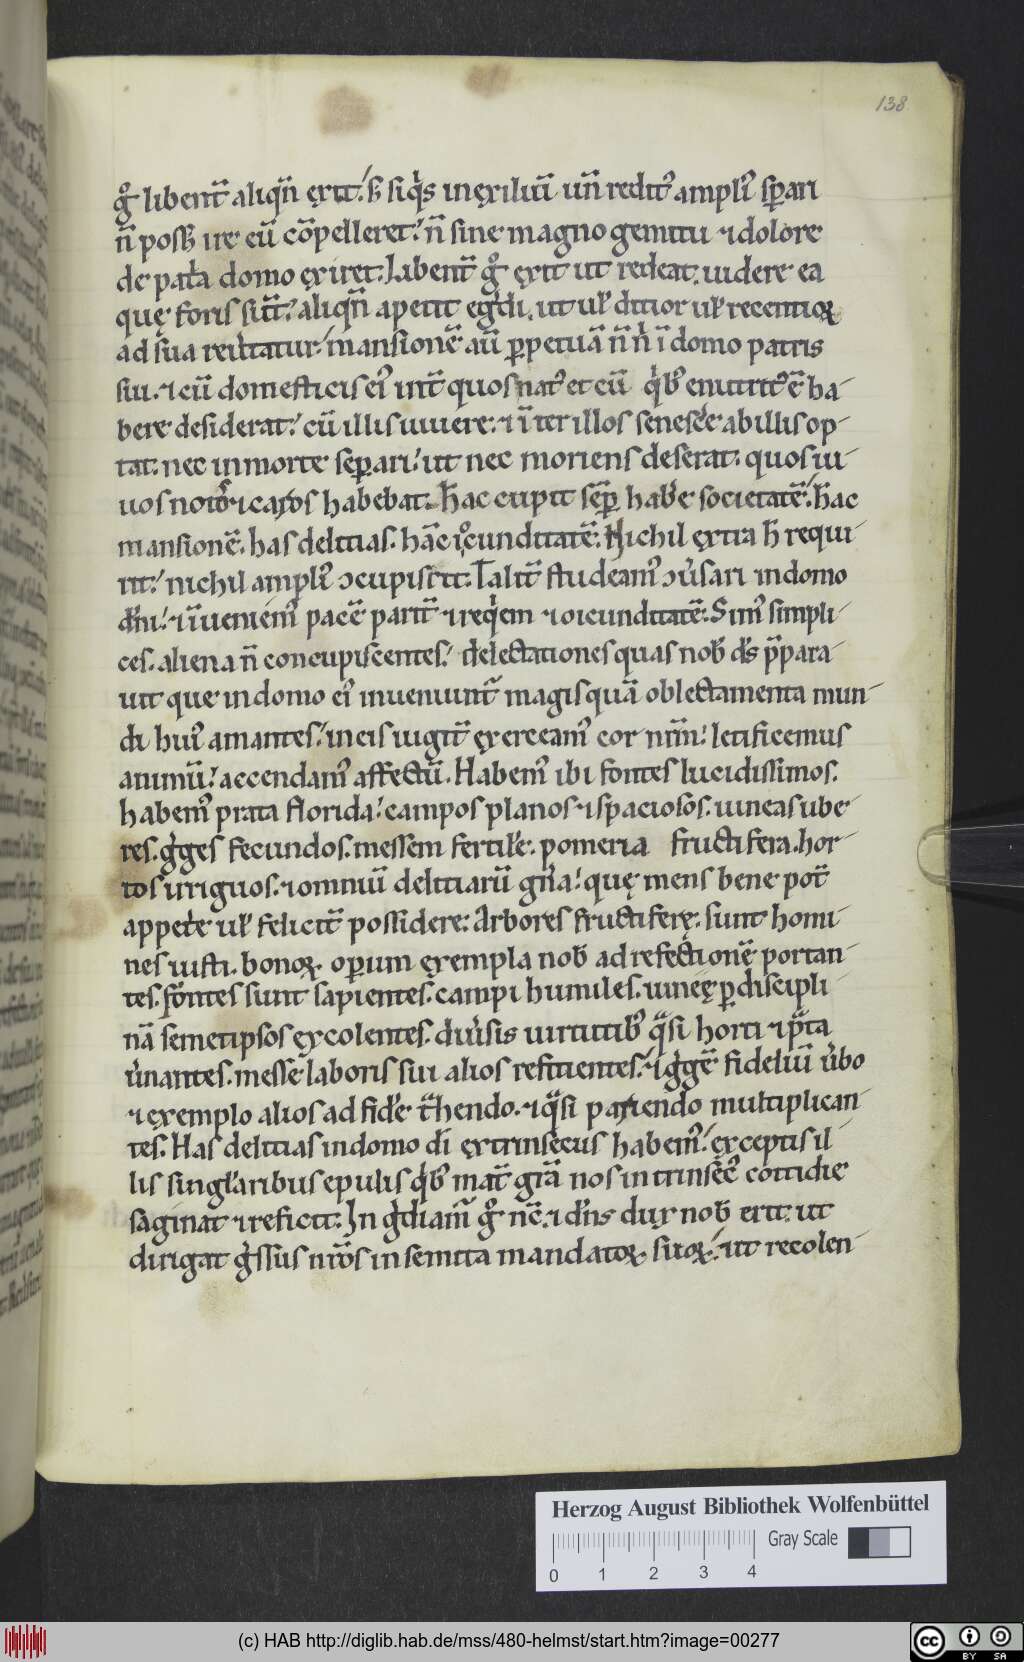 138
gͦ libent̄ aliqn̄ ęxit.' s̄ siqͥs in ęxiliū un̄ reditꝰ ampliꝰ sꝑari
n̄ posset ire eū cōpelleret.' n̄ sine magno gemitu ⁊ dolore
de pat̍a domo ęxiret. Libent̄ gͦ ęxit ut redeat. uidere ea
quę foris sūt.' aliqn̄ apetit eg̍di. ut ul̵ ditior ul̵ recentioꝝ
ad sua reu̍tatur.' mansionē aū ꝑpetuā n̄ n̍ ī domo patris
sui. ⁊ cū domesticis eiꝰ int̄ quos natꝰ et cū qͥbꝰ enutritꝰ ē ha-
bere desiderat.' cū illis uiuere. ⁊ īter illos senesce̍e ab illis op-
tat. nec in morte seꝑari.' ut nec moriens deserat. quos ui-
uos notos ⁊ caros habebat. H̄ac cupit sēꝑ hab̍e societatē. h̄ac
mansionē. has delitias. hāc iocunditatē. Nichil ęxtra h̄ requi-
rit.' nichil ampliꝰ ↄcupiscit. Talit̄ studeamꝰ ↄu̍sari in domo
dn̄i.' ⁊ īueniemꝰ pacē parit̄ ⁊ reqͥem ⁊ oicunditatē. Simꝰ simpli-
ces. aliena n̄ concupiscentes.' delectationes quas nob̵ ds̄ p̄para-
uit que in domo eiꝰ inueniunt᷑ magis quā oblectamenta mun-
di huiꝰ amantes.' in eis iugit̄ ęxerceamꝰ cor nr̄m.' letificemus
animū.' accendamꝰ affectū. Habemꝰ ibi fontes lucidissimos.
habemꝰ prata florida.' campos planos ⁊ spaciosos. uineas ube-
res. g̍ges fecundos. messem fertile̵. pomeria fructifera. hor-
tos iriguos. ⁊ omniū delitiarū gn̍a.' quę mens bene pot̄
appete̍e ul̵ felicit̄ possidere. Arbores fructiferę. sunt homi-
nes iusti. bonoꝝ oꝑum ęxempla nob̵ ad refectionē portan-
tes. fontes sunt sapientes. campi humiles. uineę ꝑ discipli-
nā semetipsos ęxcolentes. diu̍sis uirtutibꝰ qͣsi horti ⁊ pͣta
u̍nantes. messē laboris sui alios refitientes.' ⁊ g̍gē fideliū u̍bo
⁊ ęxemplo alios ad fide̵ t̄hendo. ⁊ qͣsi pariendo multiplican-
tes. Has delitias in domo di̅ ęxtrinsecus habemꝰ.' ęxceptis il-
lis singl̵aribus epulis qͥbꝰ mat̄ gr̄a nos intrinsec̄ꝰ cottidie
saginat ⁊ reficit. In g̍diam̄ gͦ nc̄. ⁊ dn̄s dux nob̵ erit. ut
dirigat g̍ssus nr̄os in semita mandatoꝝ suoꝝ.' ut recolen-
Herzog August Bibliothek Wolfenbüttel
Gray Scale
0 1 2 3 4
(c) HAB http://diglib.hab.de/mss/480-helmst/start.htm?image=00277
cc BY SA